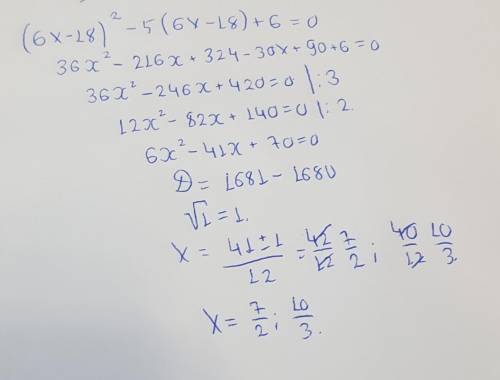 (6x-18)² - 5(6x-18)+6=0
36x² - 216x + 324 - 30x + 90 + 6 = 0
36x² - 246x + 420 = 0 |:3
12x² - 82x + 140 = 0 |:2.
6x² - 41x + 70 = 0
D = 1681 - 1680
√1 = 1.
x = (41±1)/12 = 42/12 7/2 ; 40/12 10/3.
x = 7/2 ; 10/3.